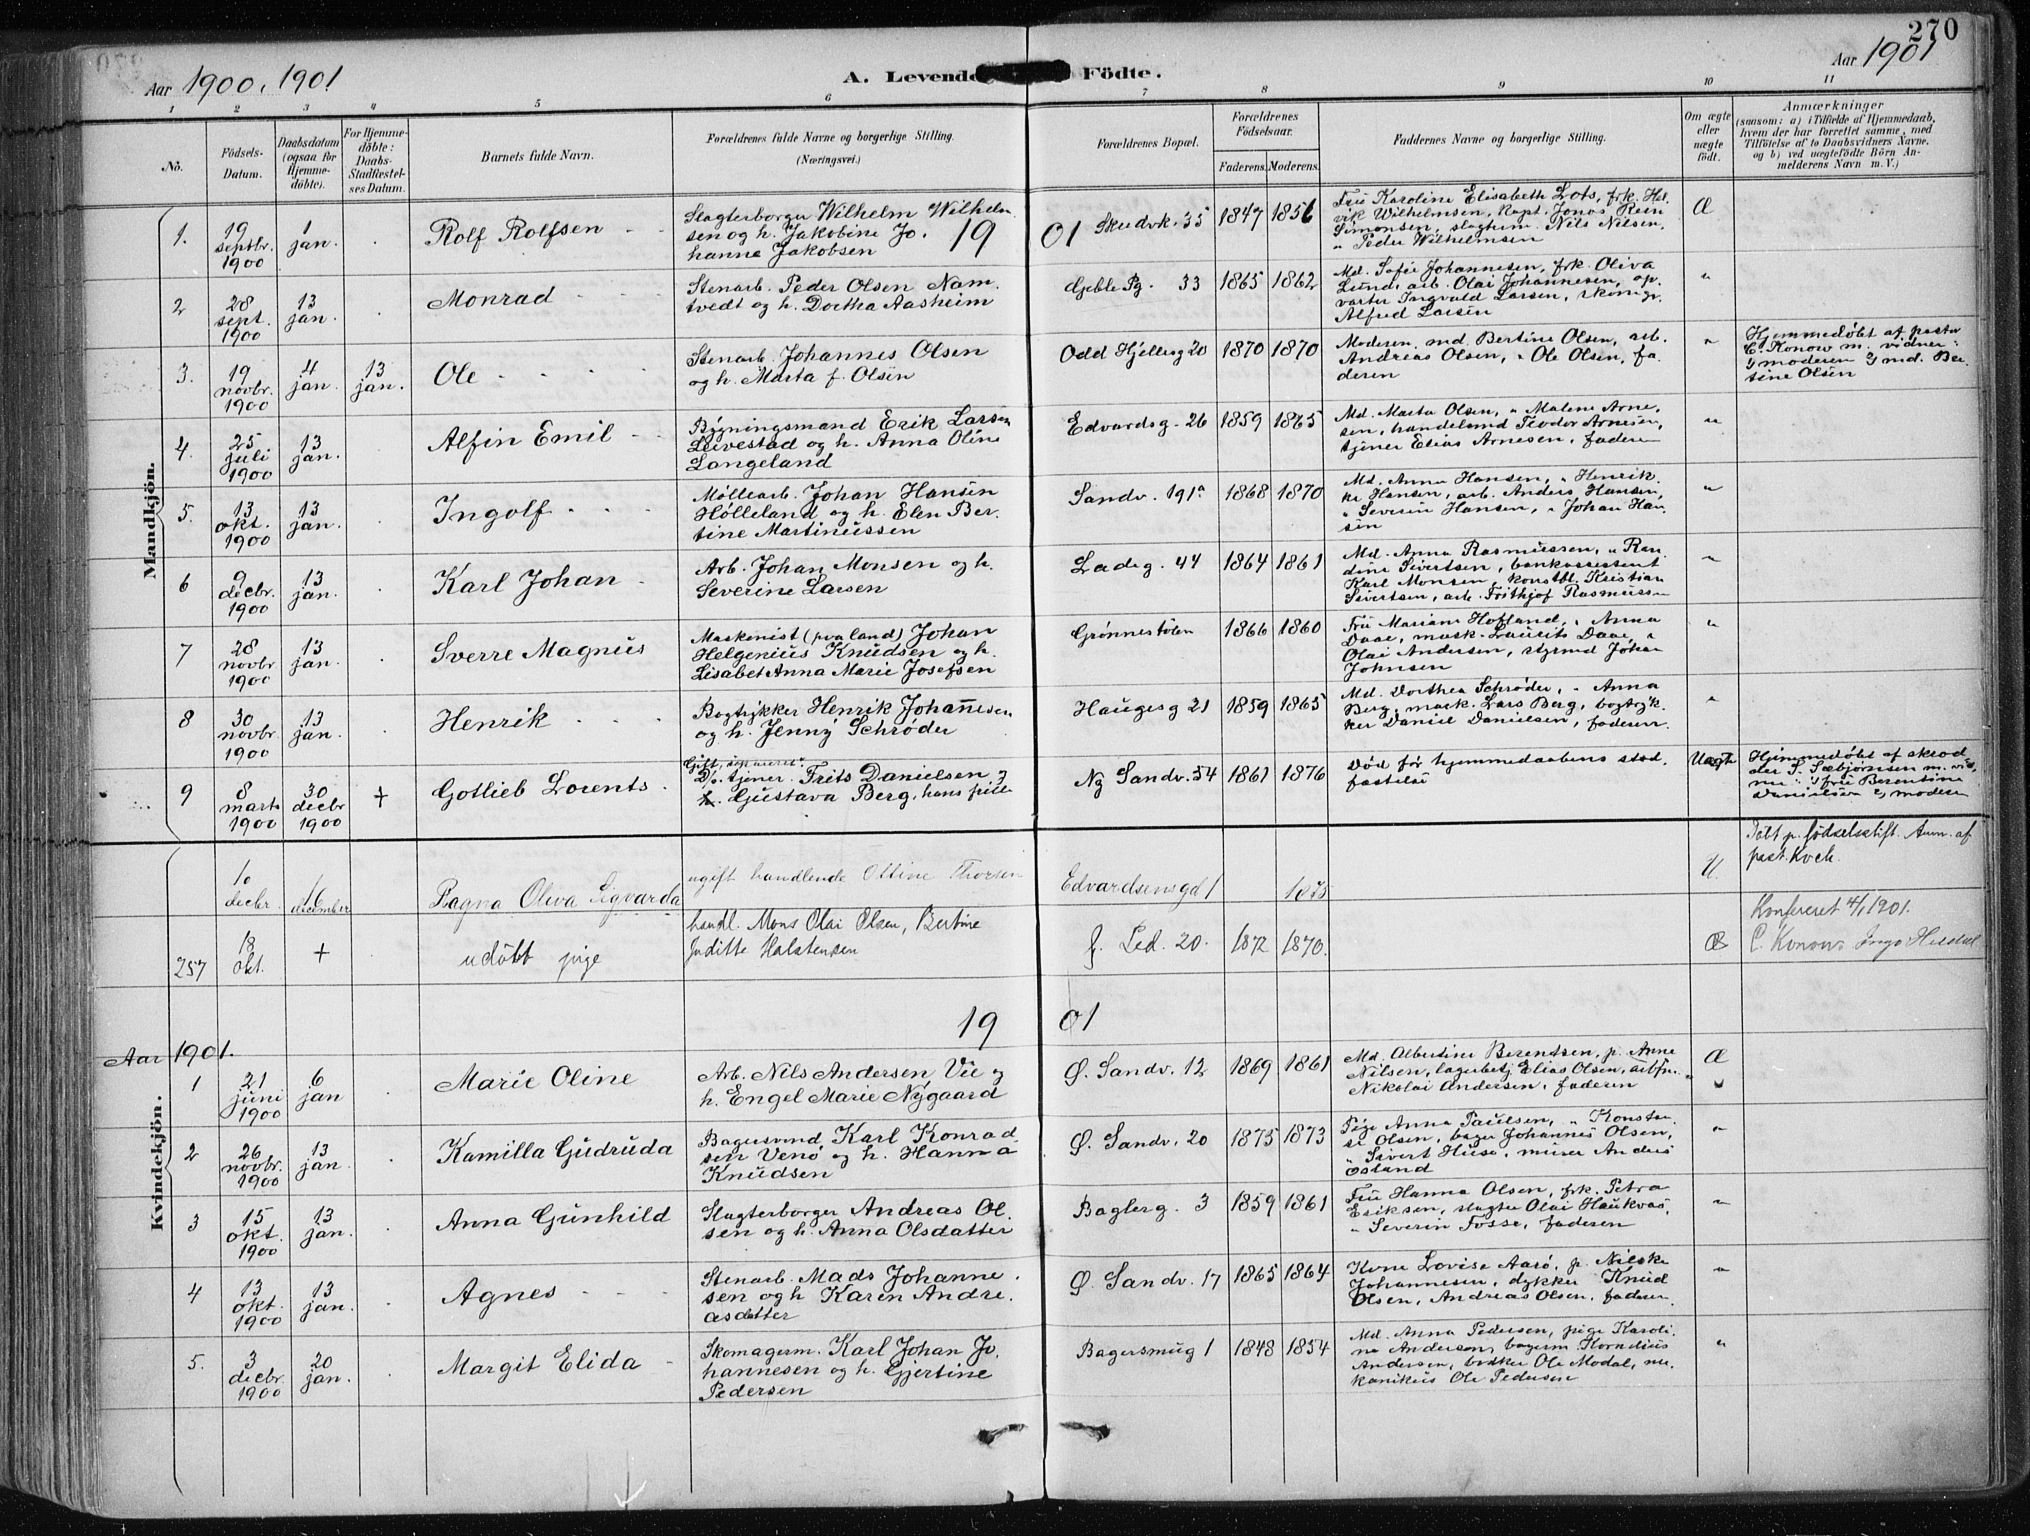 270
Aar 1900, 1901
A. Levende Födte.
Aar 1901
1 2 3 4 5 6 7 8 9 10 11
No.
Födsels-
Datum.
Daabsdatum
(ogsaa for
Hjemme-
döbte).
For Hjemme-
döbte:
Daabs-
Stadfæstel-
ses Datum.
Barnets fulde Navn.
Forældrenes fulde Navne og borgerlige Stilling.
(Næringsvei.)
Forældrenes Bopæl.
Forældrenes
Födselsaar.
Faderens. Moderens.
Faddernes Navne og borgerlige Stilling.
Om ægte
eller
uægte
födt.
Anmærkninger
(saasom: a) i Tilfælde af Hjemmedaab,
hvem der har forrettet samme, med
Tilföielse af to Daabsvidners Navne,
og b) ved uægtefödte Börn An-
melderens Navn m. V.)
Mandkjön.
1. 19 septbr. 1900 1 jan. Rolf Rolfsen
Slagterborger Wilhelm Wilhelm
sen og h. Jakobine Jo.
hanne Jakobsen
19 01
Skudvk. 35 1847 1856
Fru Karoline Elisabeth Lots, frk. Hel
vik Wilhelmsen, kapt. Jonas Rein
Simonsen, slagterm. Nils Nilsen,
" Peder Wilhelmsen
Æ
2 28 sept. 1900 13 jan. Monrad
Stenarb. Peder Olsen Nam
tvedt og h. Dorthea Aasheim
Geble Pg. 33 1865 1862
Md. Sofie Johannesen, frk. Oliva
Lund, arb. Olai Johannesen, op
varter Ingvald Larsen, skomgr.
Alfred Larsen
"
3. 19 novbr. 1900 4 jan. 13 jan. Ole
Stenarb. Johannes Olsen
og h. Marta f. Olsen
Odd Hjelesg 20 1870 1870
Moderen, md. Bertine Olsen, arb.
Andreas Olsen, " Ole Olsen, fa-
deren
"
Hjemmedøbt af pastor
C. Konow m. vidner:
1) moderen 2) md. Ber
tine Olsen
4. 25 juli 1900 13 jan. Alfin Emil
Bygningsmand Erik Larsen
Leivestad og h. Anna Oline
Langeland
Edvardsg. 26 1859 1865
Md. Marta Olsen, " Malene Arne,
sen, handelsmd Teodor Arnesen,
tjener Elias Arnesen, faderen
"
5. 13 okt. 1900 13 jan. Ingolf
Møllearb. Johan Hansen
Hølleland og h. Elen Ber-
tine Martinussen
Sandv. 191a 1868 1870
Md. Anna Hansen, " Henrik.
ke Hansen, arb. Anders Hansen,
" Severin Hansen, " Johan Han
sen
"
6 9 decbr. 1900 13 jan. Karl Johan
Arb. Johan Monsen og h.
Severine Larsen
Ladeg. 44 1864 1861
Md. Anna Rasmussen, " Ran
dine Sivertsen, bankassistent
Karl Monsen, konstbl. Kristian
Sivertsen, arb. Frithjof Rasmussen
"
7 28 novbr. 1900 13 jan. Sverre Magnus
Maskinist (pva land) Johan
Helgenius Knudsen og h.
Lisabet Anna Marie Josefsen
Grønnestølen 1866 1860
Fru Mariam Hofland, " Anna
Daae, mask. Laurits Daae, "
Olai Andersen, styrmd Johan
Johnsen
"
8 30 novbr. 1900 13 jan. Henrik
Bogtrykker Henrik Johannesen
og h. Jenny Schrøder
Haugesg 21 1859 1865
Md. Dorthea Schrøder, " Anna
Berg, mask. Lars Berg, bogtryk
ker Daniel Danielsen, faderen.
"
9 8 marts 1900 30 decbr 1900 + Gotlieb Lorents
Gift, separeret
tjener Frits Danielsen og
Gustava Berg, hans pike
Ny Sandv. 54 1861 1876
Død før hjemmedaabens stad
fæstelse
Uægte
Hjemmedøbt af skræd
der S. Sæbjørnsen m. vid
ner 1) fru Berentine
Danielsen 2) moderen
10 decbr. 16 december Ragna Oliva Sigvarda
ugift handlende Ottine Thorsen
Edvardsensgd 1
U
Døbt p. fødselsstift. Anm. af
past. Koch.
257 18 okt. + udöbt pige
handl. Mons Olai Olsen, Bertine
Juditte Halstensen
f. Led. 20. 1872 1870.
Æ
Konfereret 4/1 1901.
C. Konow
19 01
Aar 1901.
Kvindekjön.
1 21 juni 1900 6 jan Marie Oline
Arb. Nils Andersen Vie og
h. Engel Marie Nygaard
Ø. Sandv. 12 1869 1861
Md. Albertine Berentsen, p. Anne
Nilsen, lagerbetj Elias Olsen, arbfm.
Nikolai Andersen, faderen
Æ
2 26 novbr. 1900 13 jan. Kamilla Gudruda
Bagersvend Karl Konrad
sen Venø og h. Hanna
Knudsen
Ø. Sandv. 20 1875 1873
Pige Anna Paulsen, " Konstan
se Olsen, bager Johannes Olsen,
" Sivert Huse, murer Anders
Østland
"
3 15 okt. 1900 13 jan. Anna Gunhild
Slagterborger Andreas Ol.
sen og h. Anna Olsdatter
Baglerg. 3 1859 1861
Fru Hanna Olsen, frk. Petra
Eriksen, slagter Olai Haukvas,
" Severin Fosse, faderen
"
4 13 okt. 1900 13 jan. Agnes
Stenarb. Mads Johanne.
sen og h Karen Andre.
asdatter
Ø. Sandv. 17 1865 1864
Kone Lovise Aarø, p. Nilske
Johannesen, dykker Knud
Olsen, Andreas Olsen, faderen
"
5. 3 decbr. 1900 20 jan. Margit Elida
Skomagerm. Karl Johan Jo.
hannesen og h. Gjertine
Pedersen
Bagersmug 1 1848 1854
Md. Anna Pedersen, pige Karoli.
ne Andersen, bagerm Kornelius
Andersen, bødker Ole Modal, me.
kanikus Ole Pedersen
"